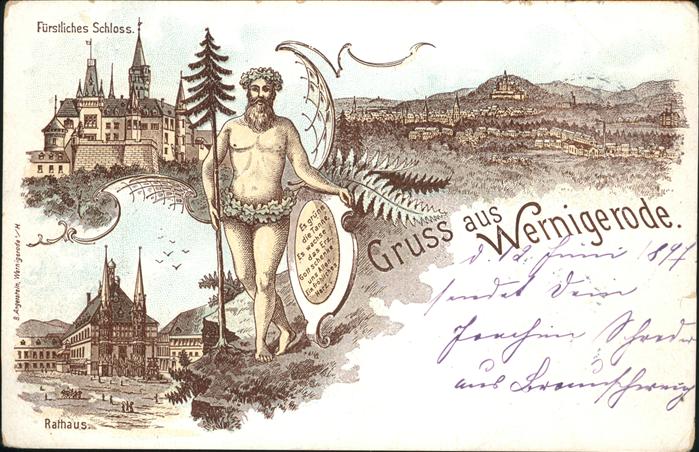 Fürstliches Schloss.
Es grüne
die Tanne,
Es wachse
das Erz,
Gott schenke
uns allen
Ein fröhliches
Herz.
Gruss aus
Wernigerode.
d. 12. Juni 1897
sendet Dein
Joachim Schröder
aus Braunschweig
Rathaus.
B. Angerstein, Wernigerode a/H